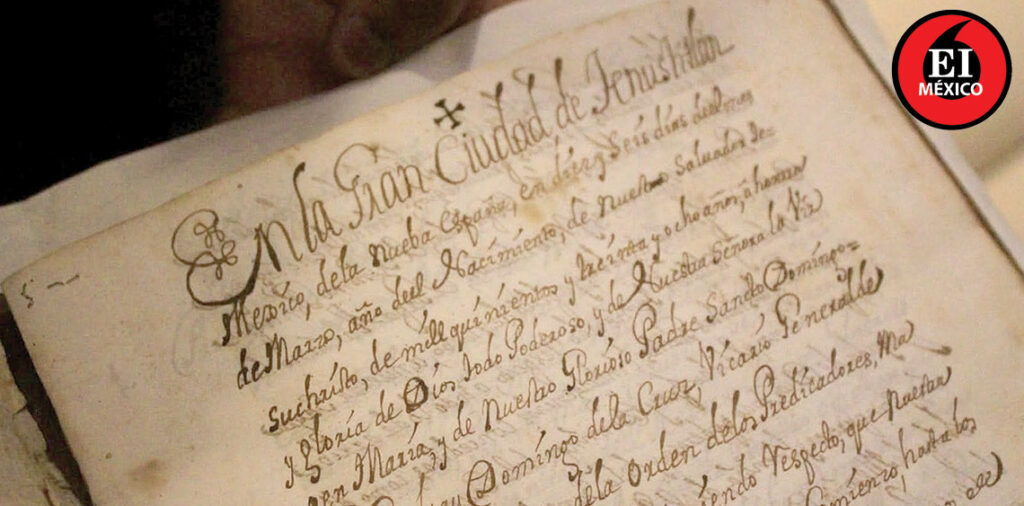 EI
MÉXICO
5
En la Gran Ciudad de Tenustitlán
Mexico, dela Nueba España, en diez y seis dias del mes
de Marzo, año del Nacimiento, de nuestro Salvador Je=
suchristo, de mill quinientos y treinta y ocho años, a honrra
y gloria de Dios todo Poderoso, y de Nuestra Señora la Vir
gen Maria, y de Nuestro Glorioso Padre Santo Domingo=
Fray Domingo dela Cruz, Vicario General de
dela Orden delos Predicadores,
Respecto, que Nuestra
hasta los